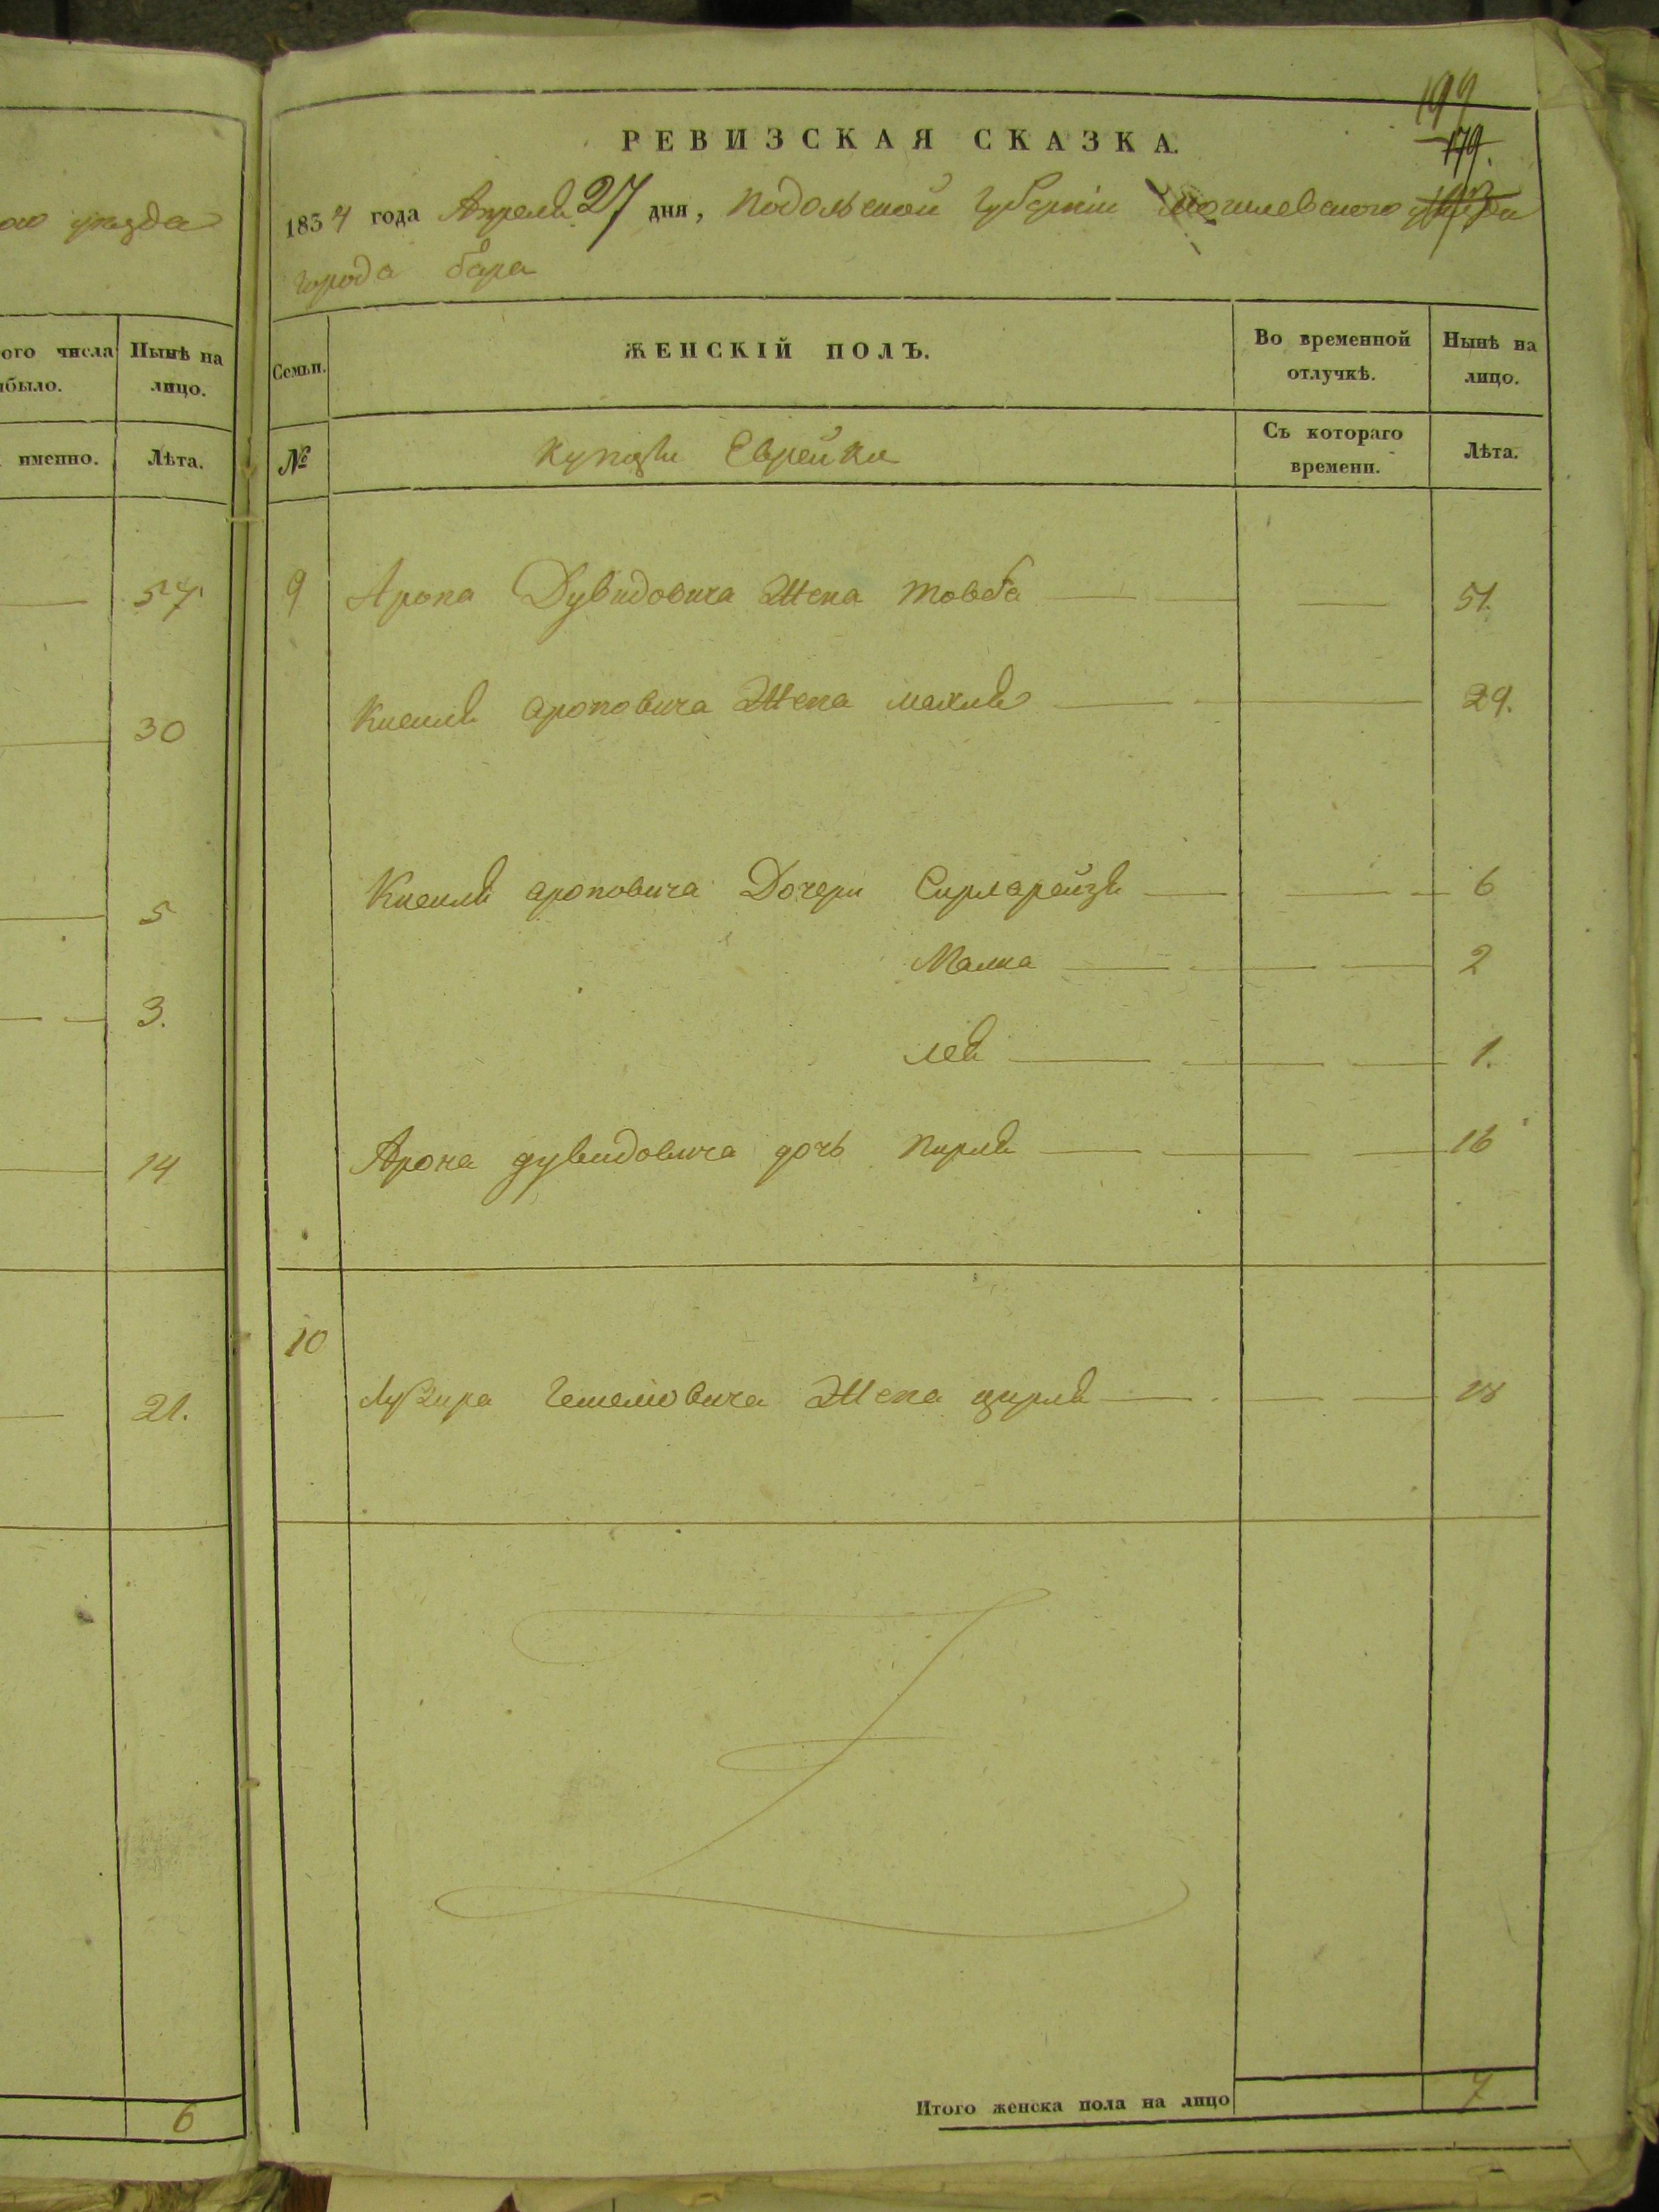 199
179.
РЕВИЗСКАЯ СКАЗКА.
1854 года Апреля 27 дня, Подольской Губернии Могилевского уезда
города бара
уезда
ого числа
ыбыло.
Нынѣ на
лицо.
именно.
Лѣта.
57
30
5
3.
14
21.
6
Семьи.
ЖЕНСКІЙ ПОЛЪ.
Во временной
отлучкѣ.
Нынѣ на
лицо.
№
купцы Еврейки
Съ котораго
времени.
Лѣта.
9 Арона Дувидовича Жена товба 51.
Киселя ароновича Жена махля 29.
Киселя ароновича Дочери Сирларейзя 6
Малка 2
лея 1.
Арона дувидовича дочь пирля 16
10
Лузира Гешеловича Жена цирля 18
Итого женска пола на лицо 7